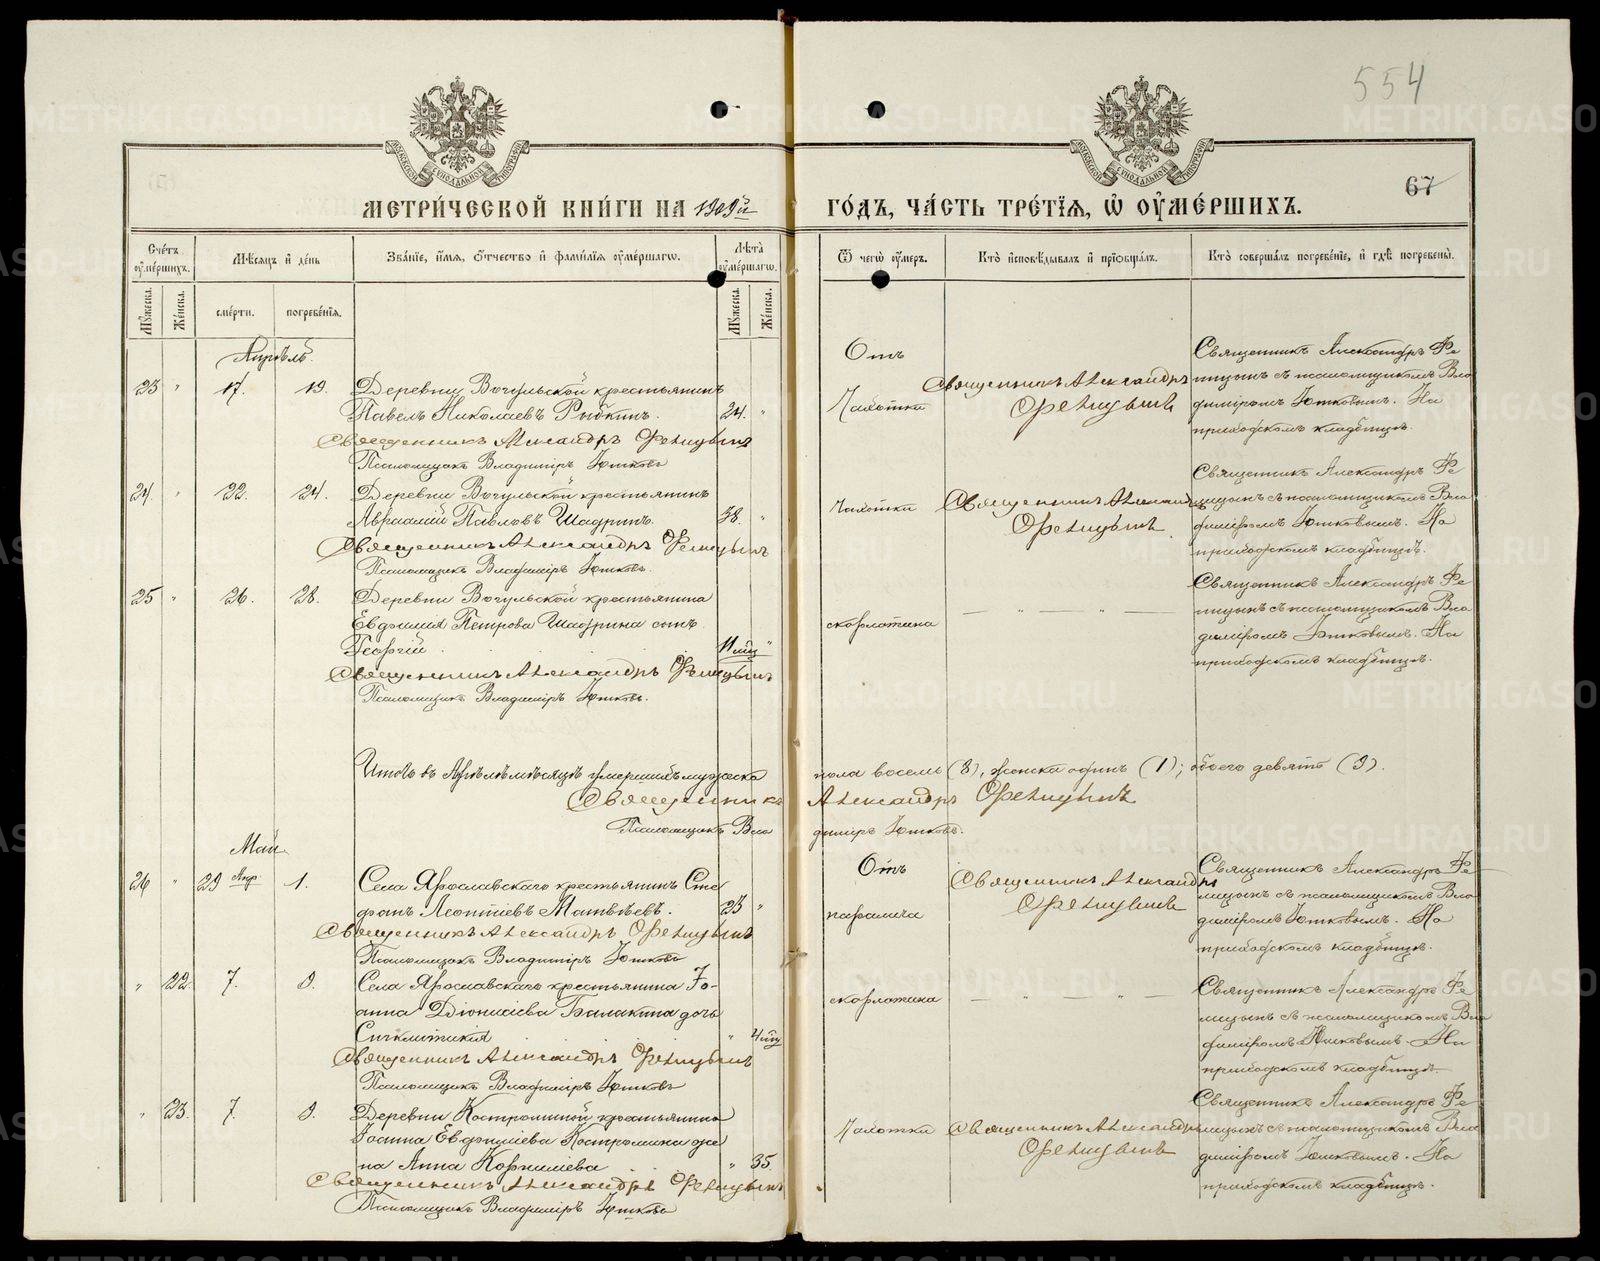 554
67
МЕТРИ́ЧЕСКОЙ КНИ́ГИ НА 1909й ГО́ДЪ, ЧА́СТЬ ТРЕ́ТЇѦ, Ѿ ОУ҆МЕ́РШИХЪ.
Сче́тъ оу҆ме́ршихъ.
Мѣ́сяцъ и҆ де́нь
Зва́нїе, и҆́мя, ѻ҆́тчество и҆ фами́лїя оу҆ме́ршагѡ.
Лѣ́та оу҆ме́ршагѡ.
Ѿ чегѡ̀ оу҆́меръ.
Кто̀ и҆сповѣ́дывалъ и҆ прїѡбща́лъ.
Кто̀ соверша́лъ погребе́нїе, и҆ гдѣ̀ погребены̀.
Мꙋ́жеска.
Же́нска.
сме́рти.
погребе́нїя.
Мꙋ́жеска.
Же́нска.
Апрѣль.
23 " 17. 19. Деревни Вогульской крестьянинъ
Павелъ Николаевъ Рыбкинъ. 24. "
Священникъ Александръ Фелицынъ
Псаломщикъ Владимiръ Ютковъ
Отъ
Чахотки
Священникъ Александръ
Фелицынъ
Священникъ Александръ Фе
лицынъ съ псаломщикомъ Вла
димiромъ Ютковымъ. На
приходскомъ кладбищѣ.
24. " 22. 24. Деревни Вогульской крестьянинъ
Авраамiй Павловъ Шадринъ. 38. "
Священникъ Александръ Фелицынъ
Псаломщикъ Владимiръ Ютковъ.
Чахотки
Священникъ Александръ
Фелицынъ.
Священникъ Александръ Фе
лицынъ съ псаломщикомъ Вла
димiромъ Ютковымъ. На
приходскомъ кладбищѣ.
25 " 26. 28. Деревни Вогульской крестьянина
Евфимiя Петрова Шадрина сынъ
Георгiй 11 мѣс "
Священникъ Александръ Фелицынъ
Псаломщикъ Владимiръ Ютковъ.
скарлатина
— " — " —
Священникъ Александръ Фе
лицынъ съ псаломщикомъ Вла
димiромъ Ютковымъ. На
приходскомъ кладбищѣ.
Итого въ Апрѣлѣ мѣсяцѣ умершихъ мужеска пола восемь (8), женска одинъ (1); обоего девять (9).
Священникъ Александръ Фелицынъ
Псаломщикъ Вла димiръ Ютковъ.
Май
26 " 29 Апр. 1. Села Ярославскаго крестьянинъ Сте
фанъ Леонтiевъ Матвѣевъ. 23 "
Священникъ Александръ Фелицынъ
Псаломщикъ Владимiръ Ютковъ
Отъ
паралича
Священникъ Александръ
Фелицынъ
Священникъ Александръ Фе
лицынъ съ псаломщикомъ Вла
димiромъ Ютковымъ. На
приходскомъ кладбищѣ.
" 22. 7. 9. Села Ярославскаго крестьянина Iо-
анна Дiонисiева Балакина дочь
Синклитикiя " 4 мѣс
Священникъ Александръ Фелицынъ
Псаломщикъ Владимiръ Ютковъ
скарлатина
— " — " —
Священникъ Александръ Фе
лицынъ съ псаломщикомъ Вла
димiромъ Ютковымъ. На
приходскомъ кладбищѣ.
" 23. 7. 9. Деревни Костроминой крестьянина
Iоанна Евфимiева Костромина же
на Анна Корнилiева " 35.
Священникъ Александръ Фелицынъ
Псаломщикъ Владимiръ Ютковъ
Чахотки
Священникъ Александръ
Фелицынъ
Священникъ Александръ Фе
лицынъ съ псаломщикомъ Вла
димiромъ Ютковымъ. На
приходскомъ кладбищѣ.
METRIKI.GASO-URAL.RU